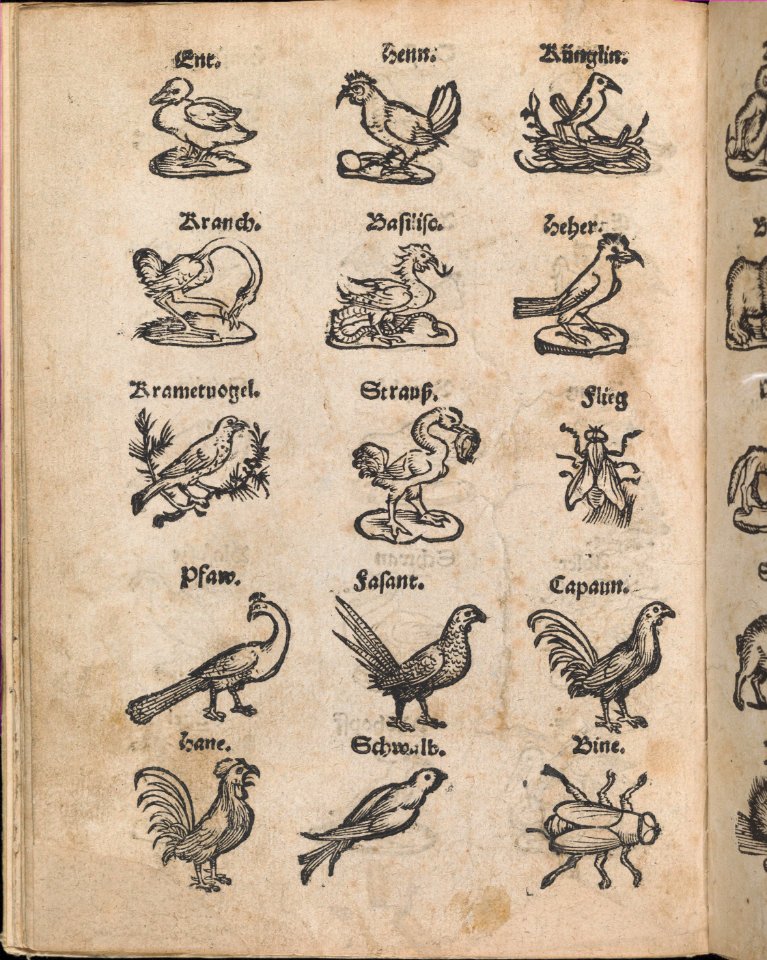 Ent. Henn. Künglin.
Kranch. Basilisc. Heher.
Krametuogel. Strauß. Flieg
Pfaw. Fasant. Capaun.
Hane. Schwalb. Bine.